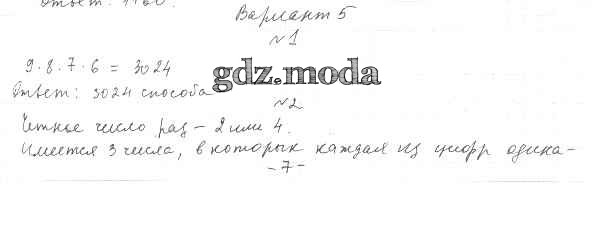 Ответ: 1160.
Вариант 5
№1
9·8·7·6 = 3024
gdz.moda
Ответ: 3024 способа
№2
Четное число раз – 2 или 4.
Имеется 3 числа, в которых каждая из цифр одина-
-7-